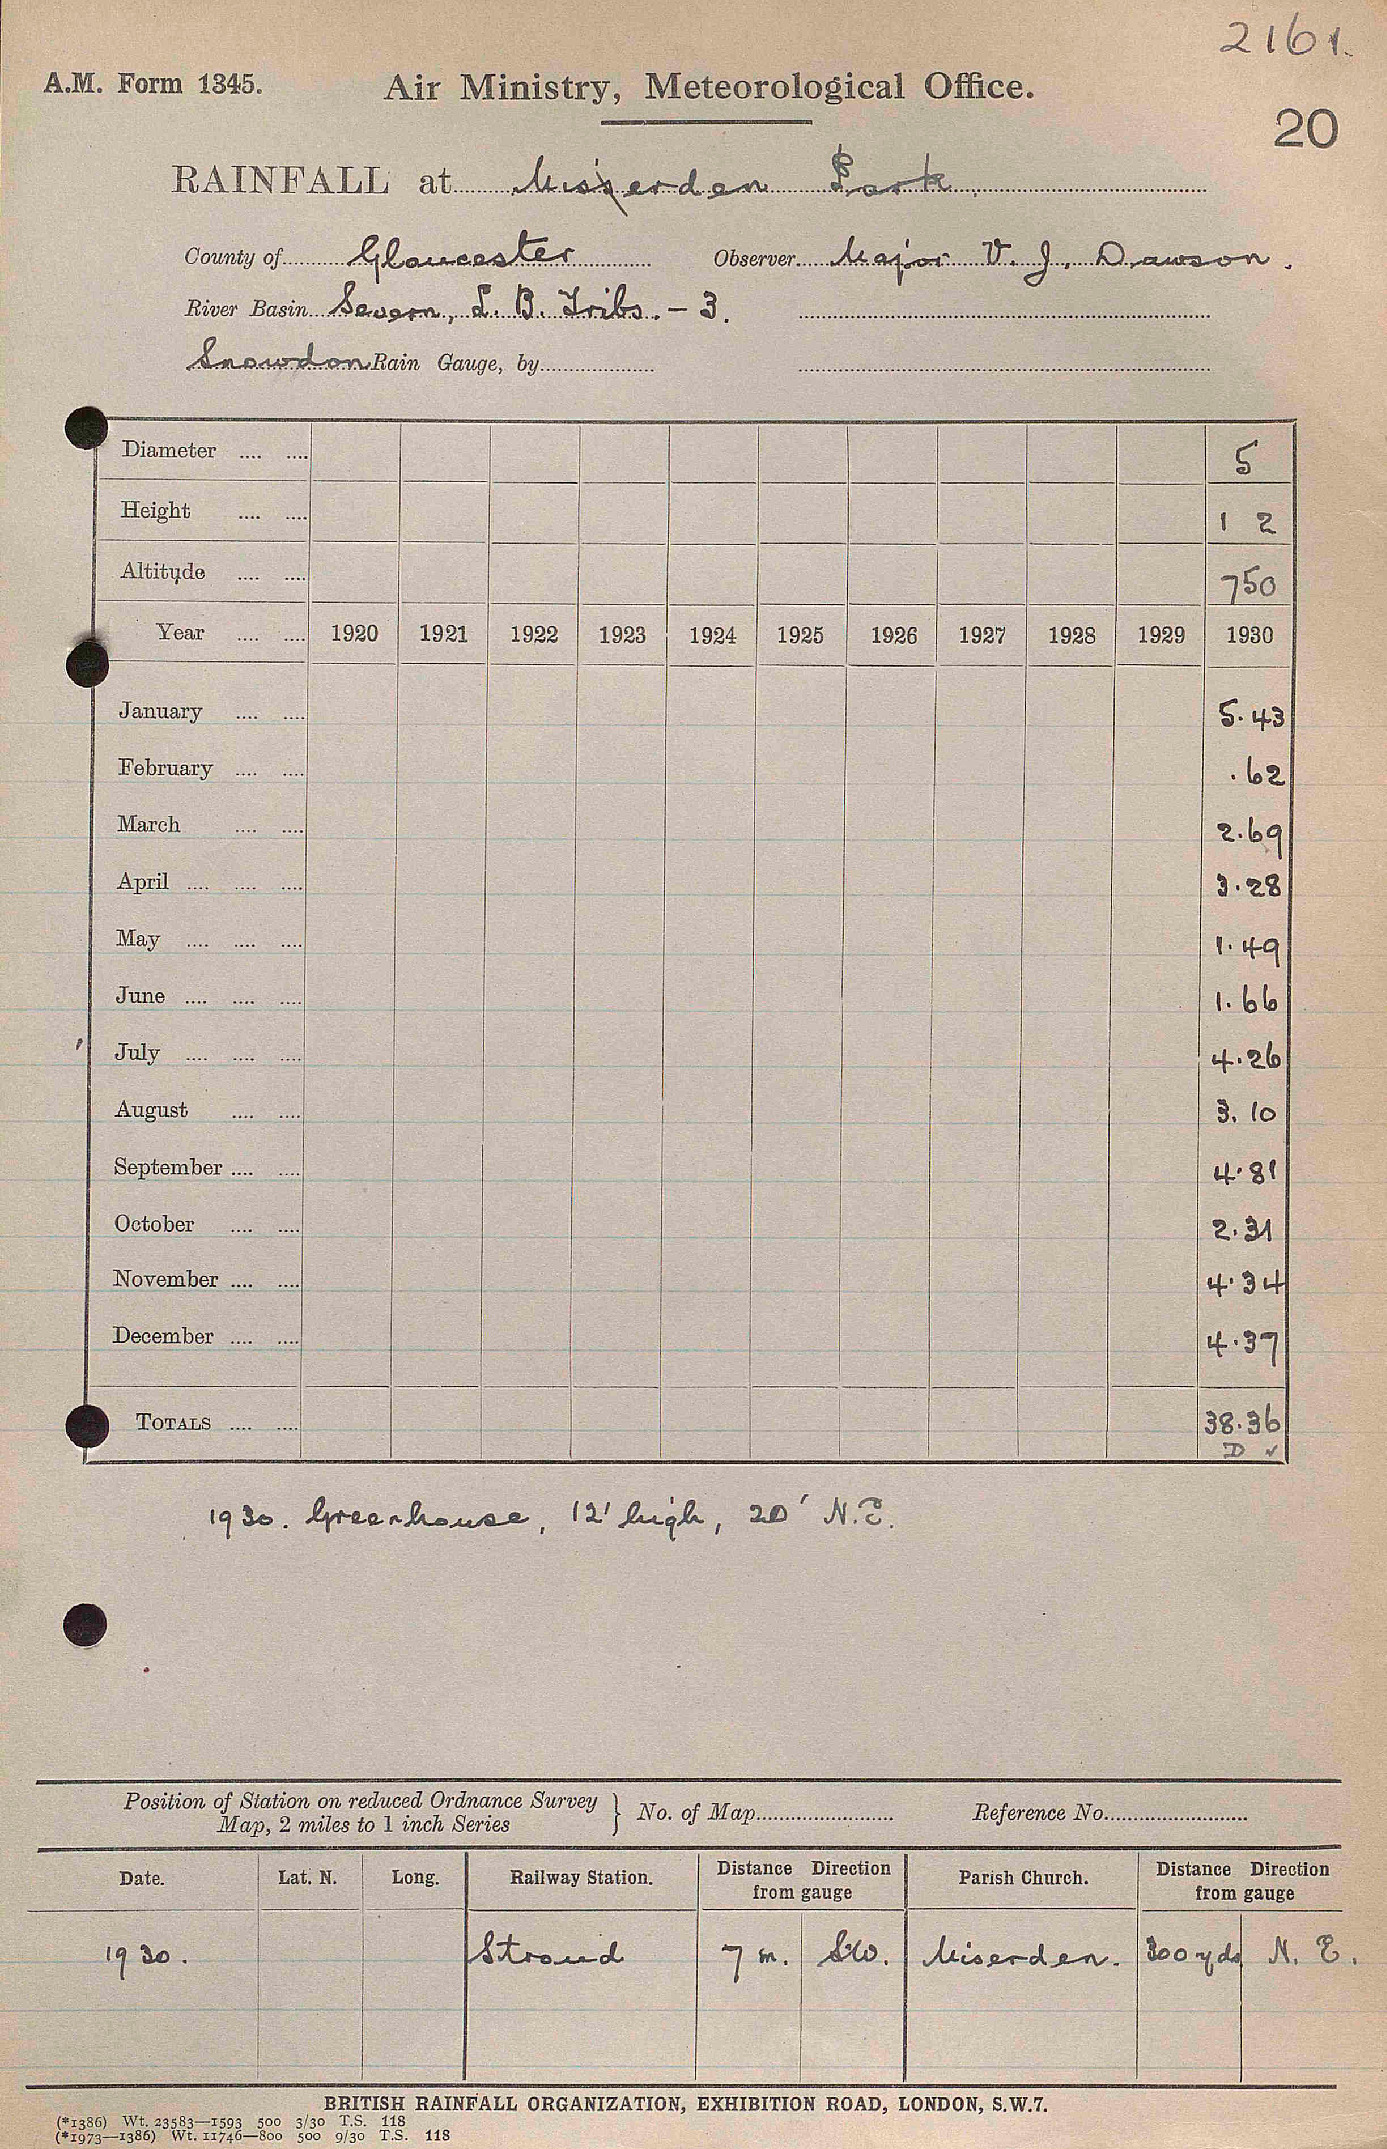 2161.
A.M. Form 1345. Air Ministry, Meteorological Office.
20
RAINFALL at Miserden Park
County of Gloucester Observer Major V. J. Dawson.
River Basin Severn, L. B. Tribs. – 3.
Snowdon Rain Gauge, by
Diameter .... .... 5
Height .... .... 1 2
Altitude .... .... 750
Year .... .... 1920 1921 1922 1923 1924 1925 1926 1927 1928 1929 1930
January .... .... 5.43
February .... .... .62
March .... .... 2.69
April .... .... .... 3.28
May .... .... .... 1.49
June .... .... .... 1.66
July .... .... .... 4.26
August .... .... 3.10
September .... .... 4.81
October .... .... 2.31
November .... .... 4.34
December .... .... 4.37
TOTALS .... .... 38.36
D ✓
1930. Greenhouse, 12' high, 20' N.E.
Position of Station on reduced Ordnance Survey
Map, 2 miles to 1 inch Series } No. of Map Reference No.
Date. Lat. N. Long. Railway Station. Distance Direction from gauge Parish Church. Distance Direction from gauge
1930. Stroud 7 m. SW. Miserden. 300 yds N. E.
BRITISH RAINFALL ORGANIZATION, EXHIBITION ROAD, LONDON, S.W.7.
(*1386) Wt. 23583—1593 500 3/30 T.S. 118
(*1973—1386) Wt. 11746—800 500 9/30 T.S. 118